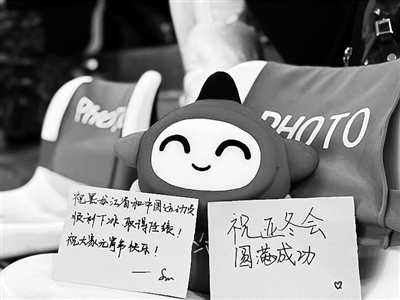 PHOTO
PHOTO
祝黑龙江省和中国运动员
顺利 取得佳绩！
祝大家元宵节快乐！
祝亚冬会
圆满成功